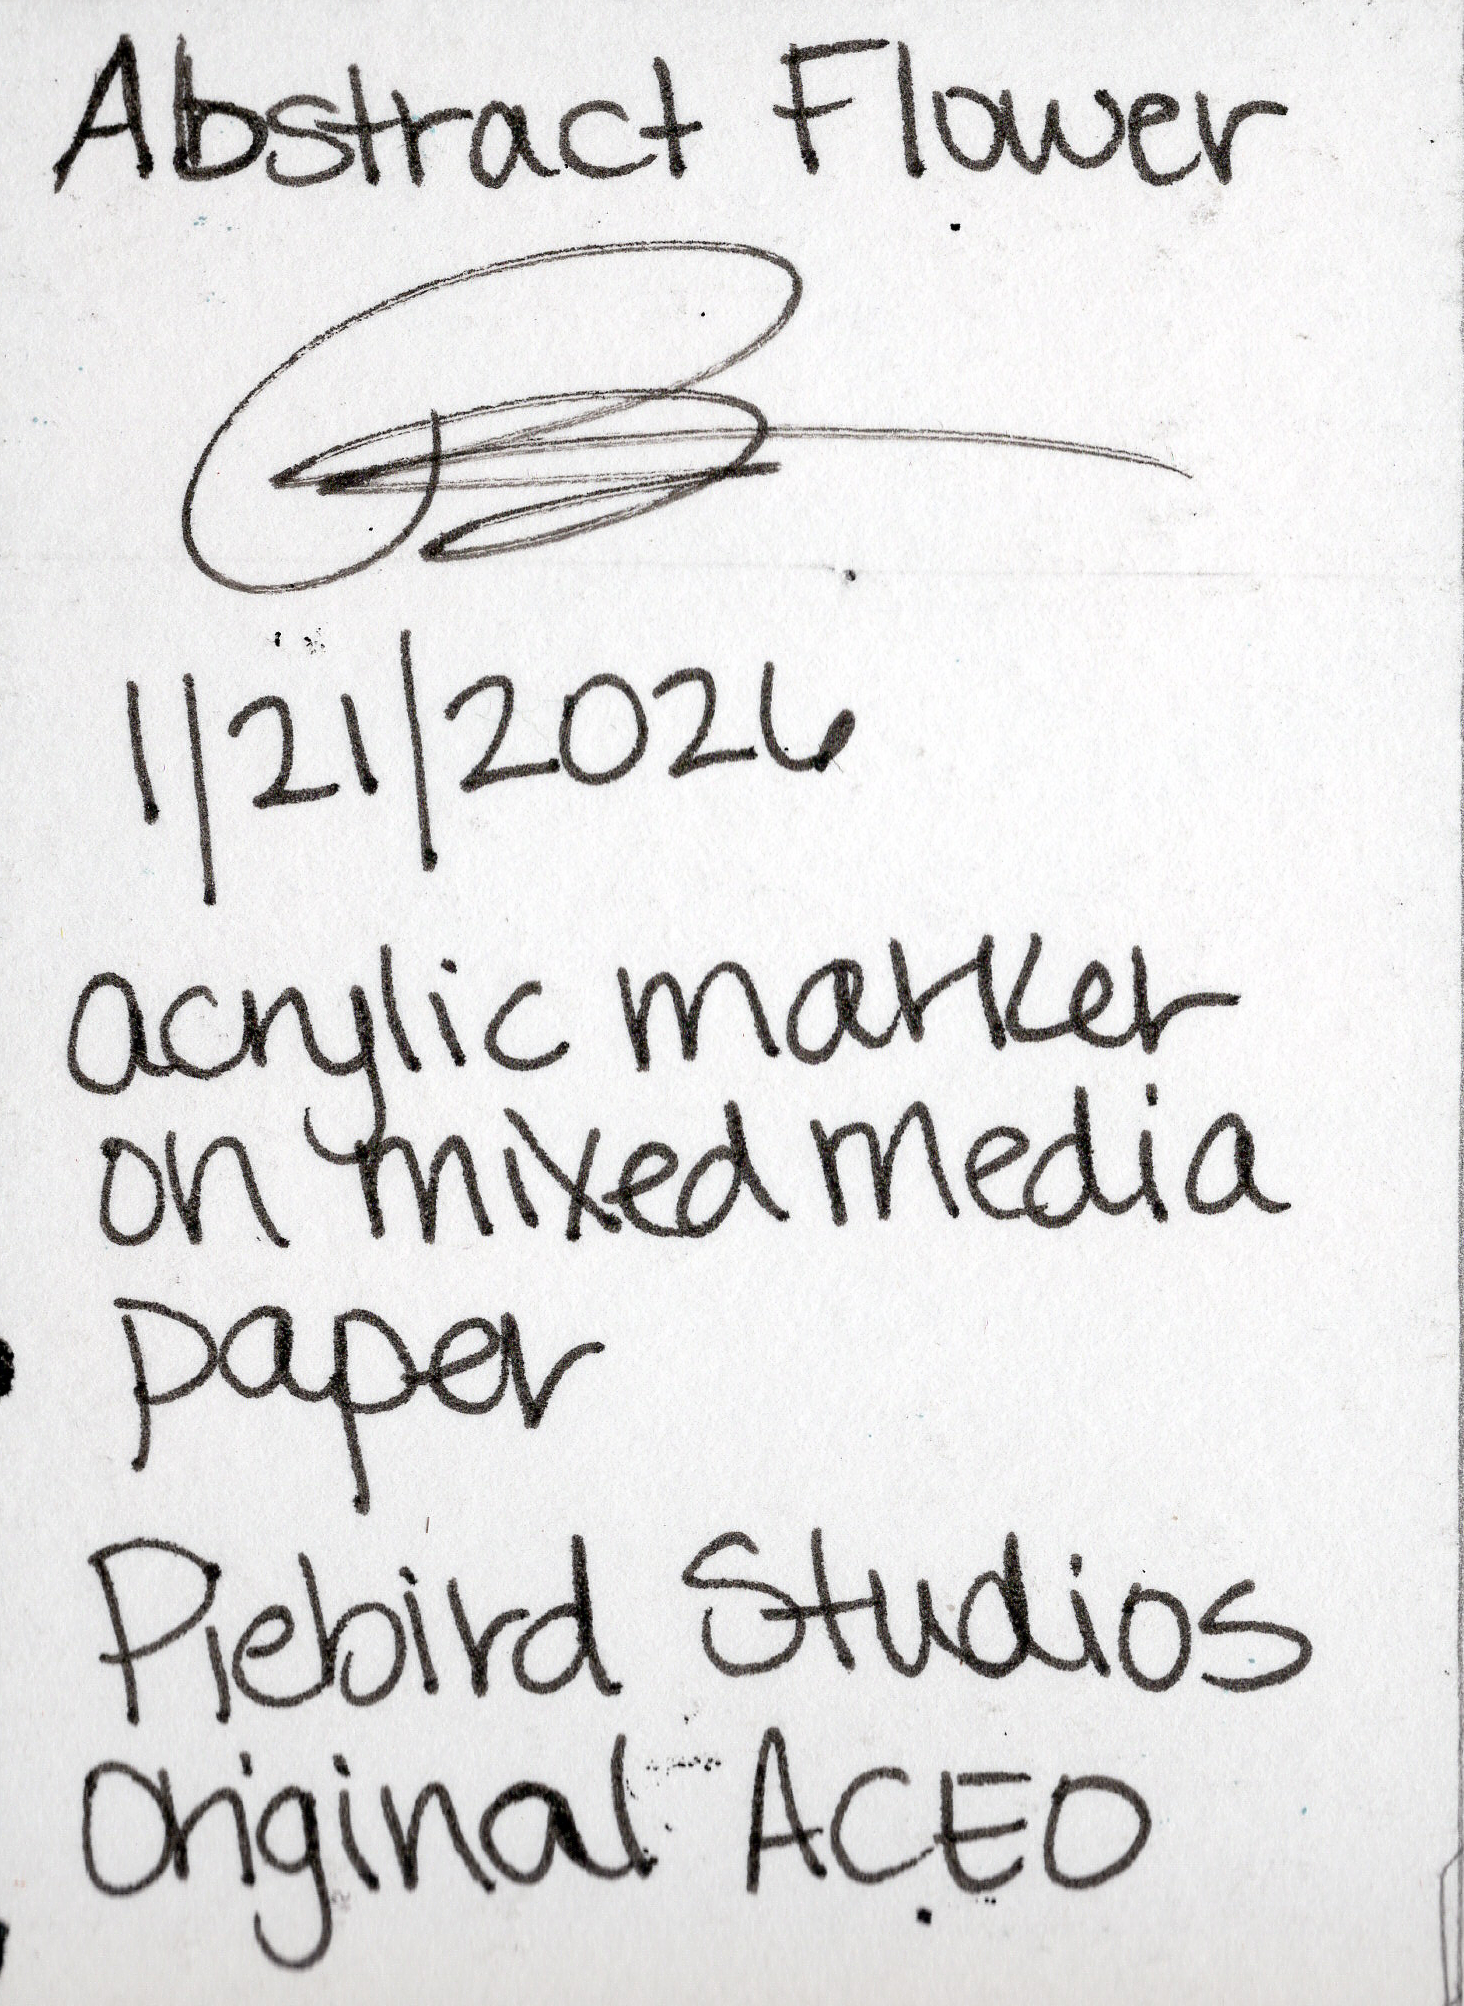 Abstract Flower
1/21/2026
acrylic marker
on mixed media
paper
Piebird Studios
Original ACEO